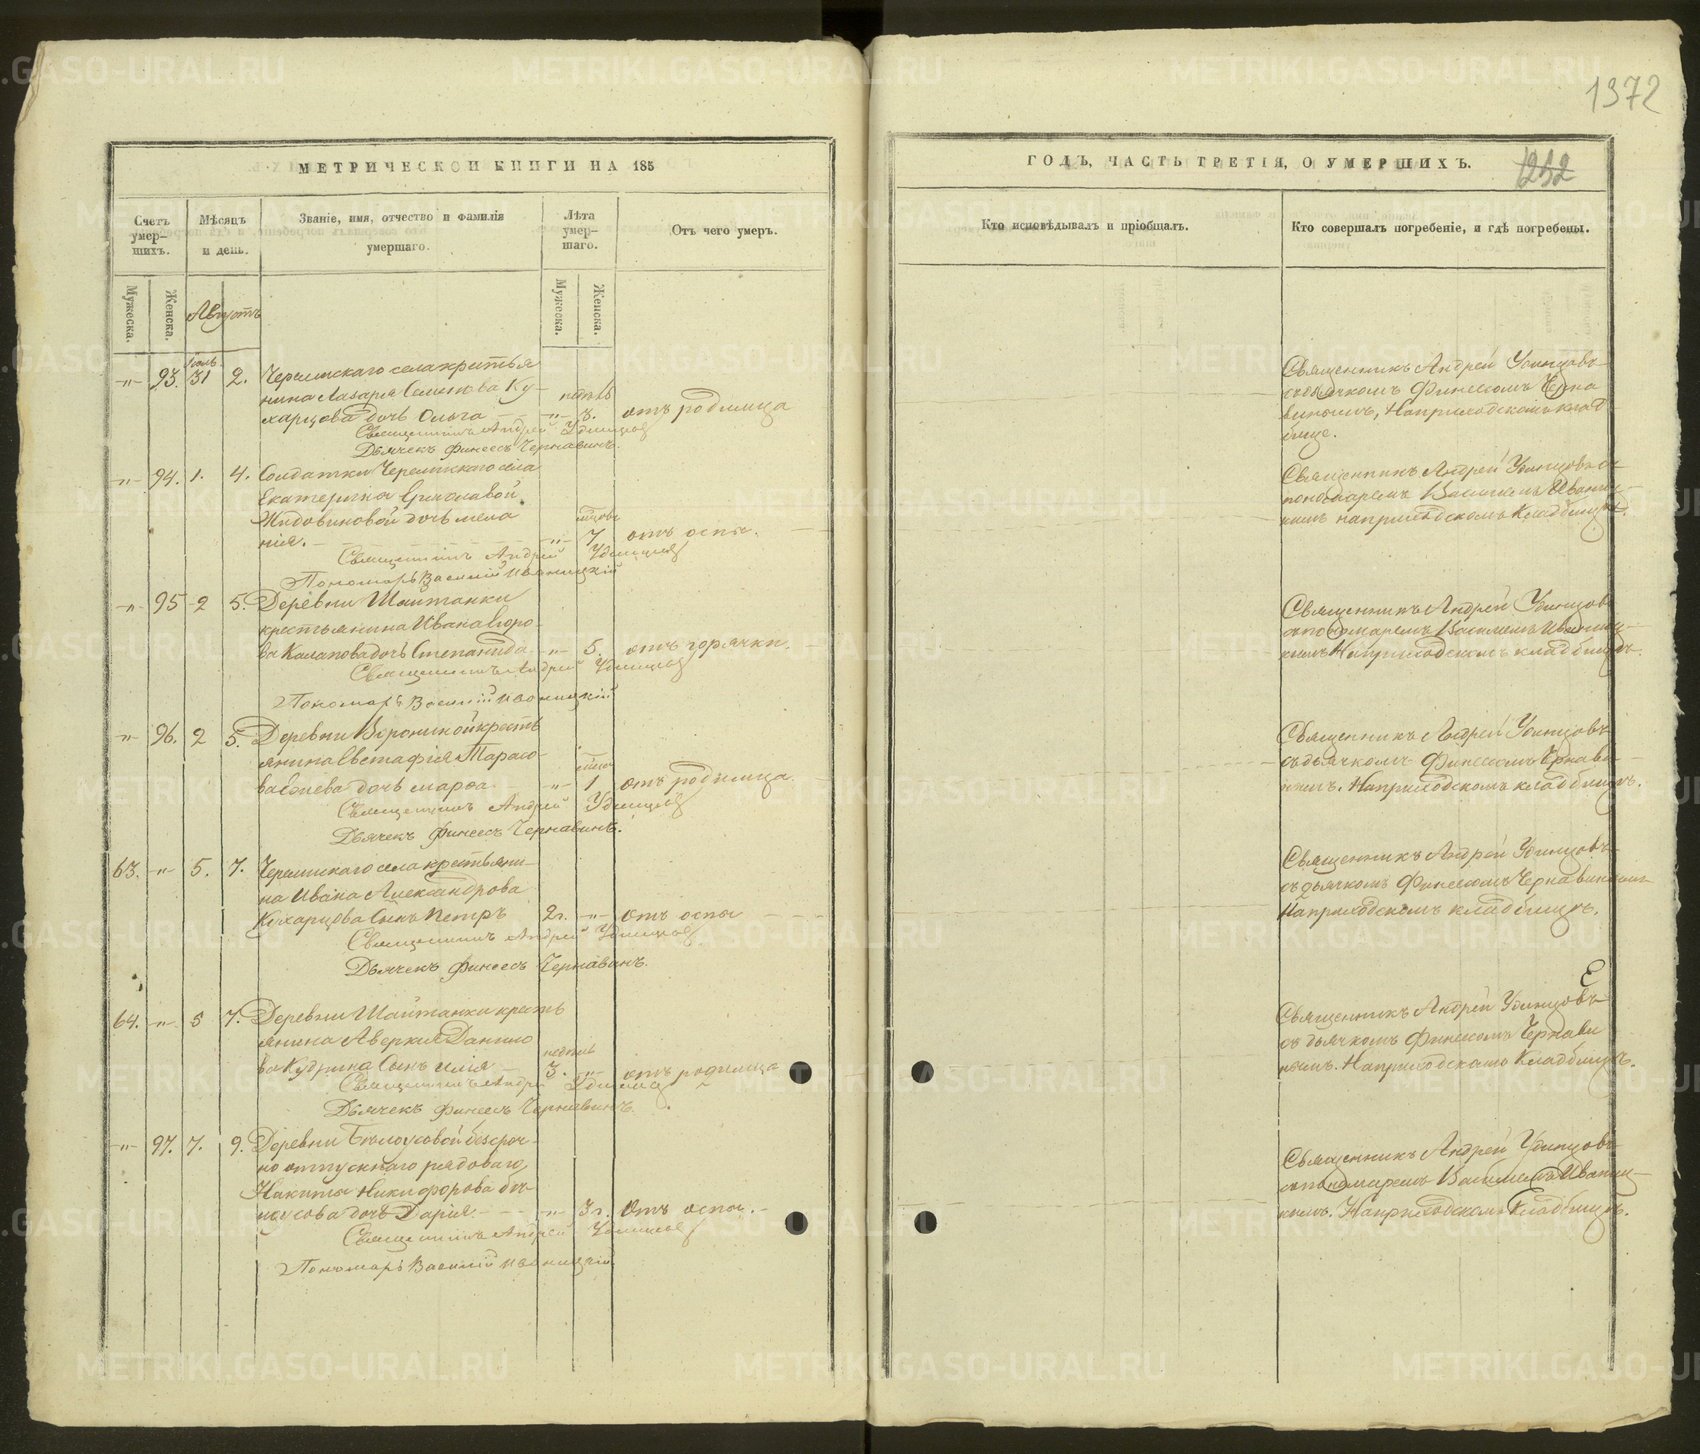 1372
МЕТРИЧЕСКОЙ КНИГИ НА 185
ГОДЪ, ЧАСТЬ ТРЕТІЯ, О УМЕРШИХЪ.
1252
Счетъ умер-шихъ.
Мѣсяцъ и день.
Званіе, имя, отчество и фамилія умершаго.
Лѣта умер-шаго.
Отъ чего умеръ.
Кто исповѣдывалъ и пріобщалъ.
Кто совершалъ погребеніе, и гдѣ погребены.
Мужеска.
Женска.
Августъ
Мужеска.
Женска.
Іюль
-"- 93. 31 2. Черемискаго села крестья
нина Лазаря Семенова Ку-
харцова дочь Ольга -"- 3. отъ родимца
Священникъ Андрей Удинцовъ
Дьячекъ Финеесъ Чернавинъ.
Священникъ Андрей Удинцовъ
съ дьячкомъ Финеесомъ Черна
винымъ, На приходскомъ клад-
бище.
-"- 94. 1. 4. Солдатки Черемискаго села
Екатерины
дочь Мела
нія. -"- 7 отъ оспы.
Священникъ Андрей Удинцовъ
Пономарь Василій Иваницкій
Священникъ Андрей Удинцовъ съ
пономаремъ Василіемъ Иваниц-
кимъ на приходскомъ кладбищѣ.
-"- 95 2 5. Деревни Шайтанки
крестьянина Ивана Егоро-
ва дочь Степанида -"- 5. отъ горячки.
Священникъ Андрей Удинцовъ
Пономарь Василій Иваницкій
Священникъ Андрей Удинцовъ
съ пономаремъ Василіемъ Иваниц-
кимъ На приходскомъ кладбищѣ.
-"- 96. 2 5. Деревни Ворониной кресть
янина Евстафія Тарасо-
ва дочь Марѳа. -"- 1 отъ родимца.
Священникъ Андрей Удинцовъ
Дьячекъ Финеесъ Чернавинъ.
Священникъ Андрей Удинцовъ
съ дьячкомъ Финеесомъ Чернави
нымъ. На приходскомъ кладбищѣ.
63. -"- 5. 7. Черемискаго села крестьяни-
на Ивана Александрова
Кухарцова сынъ Петръ 2г. -"- отъ оспы
Священникъ Андрей Удинцовъ
Дьячекъ Финеесъ Чернавинъ.
Священникъ Андрей Удинцовъ
съ дьячкомъ Финеесомъ Чернавинымъ
На приходскомъ кладбищѣ.
64. -"- 5 7. Деревни Шайтанки кресть
янина Аверкія Данило
ва Кудрина сынъ Илія 3. -"- отъ родимца
Священникъ Андрей Удинцовъ
Дьячекъ Финеесъ Чернавинъ.
Священникъ Андрей Удинцовъ
съ дьячкомъ Финеесомъ Чернави
нымъ. На приходскомъ Кладбищѣ.
-"- 97. 7. 9. Деревни Бѣлоусовой безсроч-
но отпускнаго рядоваго
Никиты Никифорова Бѣ-
лоусова дочь Дарія -"- 3г. Отъ оспы.
Священникъ Андрей Удинцовъ
Пономарь Василій Иваницкій
Священникъ Андрей Удинцовъ
съ пономаремъ Василіемъ Иваниц-
кимъ. На приходскомъ Кладбищѣ.
METRIKI.GASO-URAL.RU